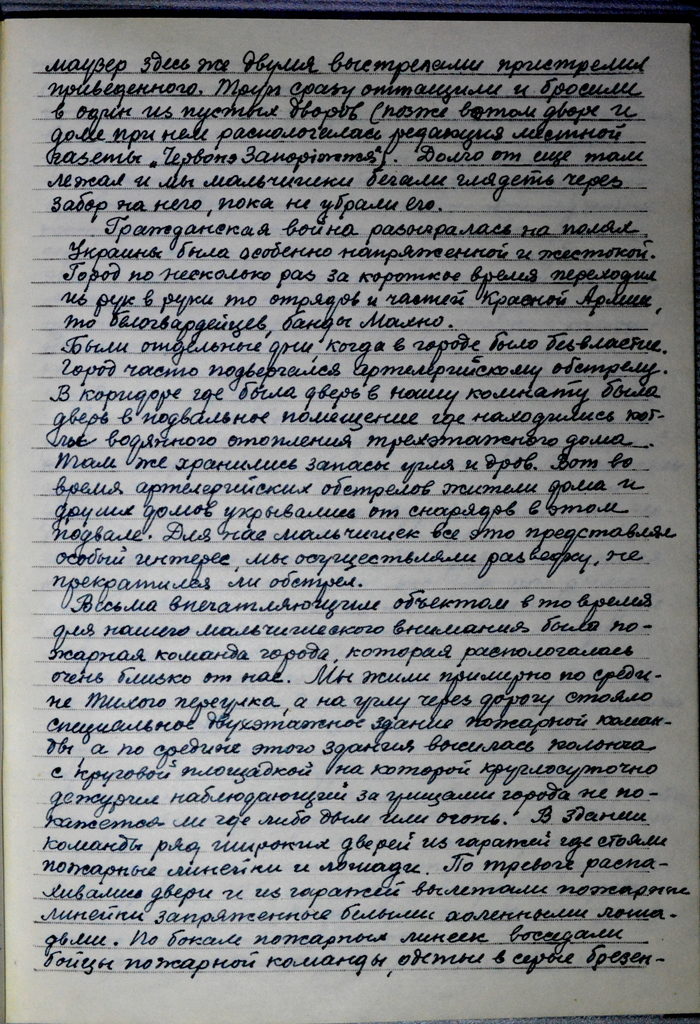 маузер здесь же двумя выстрелами пристрелил
приведенного. Труп сразу оттащили и бросили
в один из пустых дворов (позже в этом дворе и
доме при нем распологалась редакция местной
газеты „Червоне Запоріжжя"). Долго он еще там
лежал и мы мальчишки бегали глядеть через
забор на него, пока не убрали его.
Гражданская война разыгралась на полях
Украины была особенно напряженной и жестокой.
Город по несколько раз за короткое время переходил
из рук в руки то отрядов и частей Красной Армии,
то белогвардейцев, банды Махно.
Были отдельные дни, когда в городе было безвластие.
Город часто подвергался артелергийскому обстрелу.
В коридоре где была дверь в нашу комнату была
дверь в подвальное помещение где находились кот-
лы водянного отопления трехэтажного дома.
Там же хранились запасы угля и дров. Вот во
время артелергийских обстрелов жители дома и
других домов укрывались от снарядов в этом
подвале. Для нас мальчишек все это представлял
особый интерес, мы осуществляли разведку, не
прекратился ли обстрел.
Весьма впечатляющим объектом в то время
для нашего мальчишеского внимания была по-
жарная команда города, которая распологалась
очень близко от нас. Мы жили примерно по среди-
не Тихого переулка, а на углу через дорогу стояло
специальное двухэтажное здание пожарной коман-
ды, а по средине этого здания высилась каланча
с круговой площадкой на которой круглосуточно
дежурил наблюдающий за улицами города не по-
кажется ли где либо дым или огонь. В здании
команды ряд широких дверей из гаражей где стояли
пожарные линейки и лошади. По тревоге распа-
хивались двери и из гаражей вылетали пожарные
линейки запряженные белыми холенными лоша-
дьми. По бокам пожарных линеек восседали
бойцы пожарной команды, одетые в серые брезен-